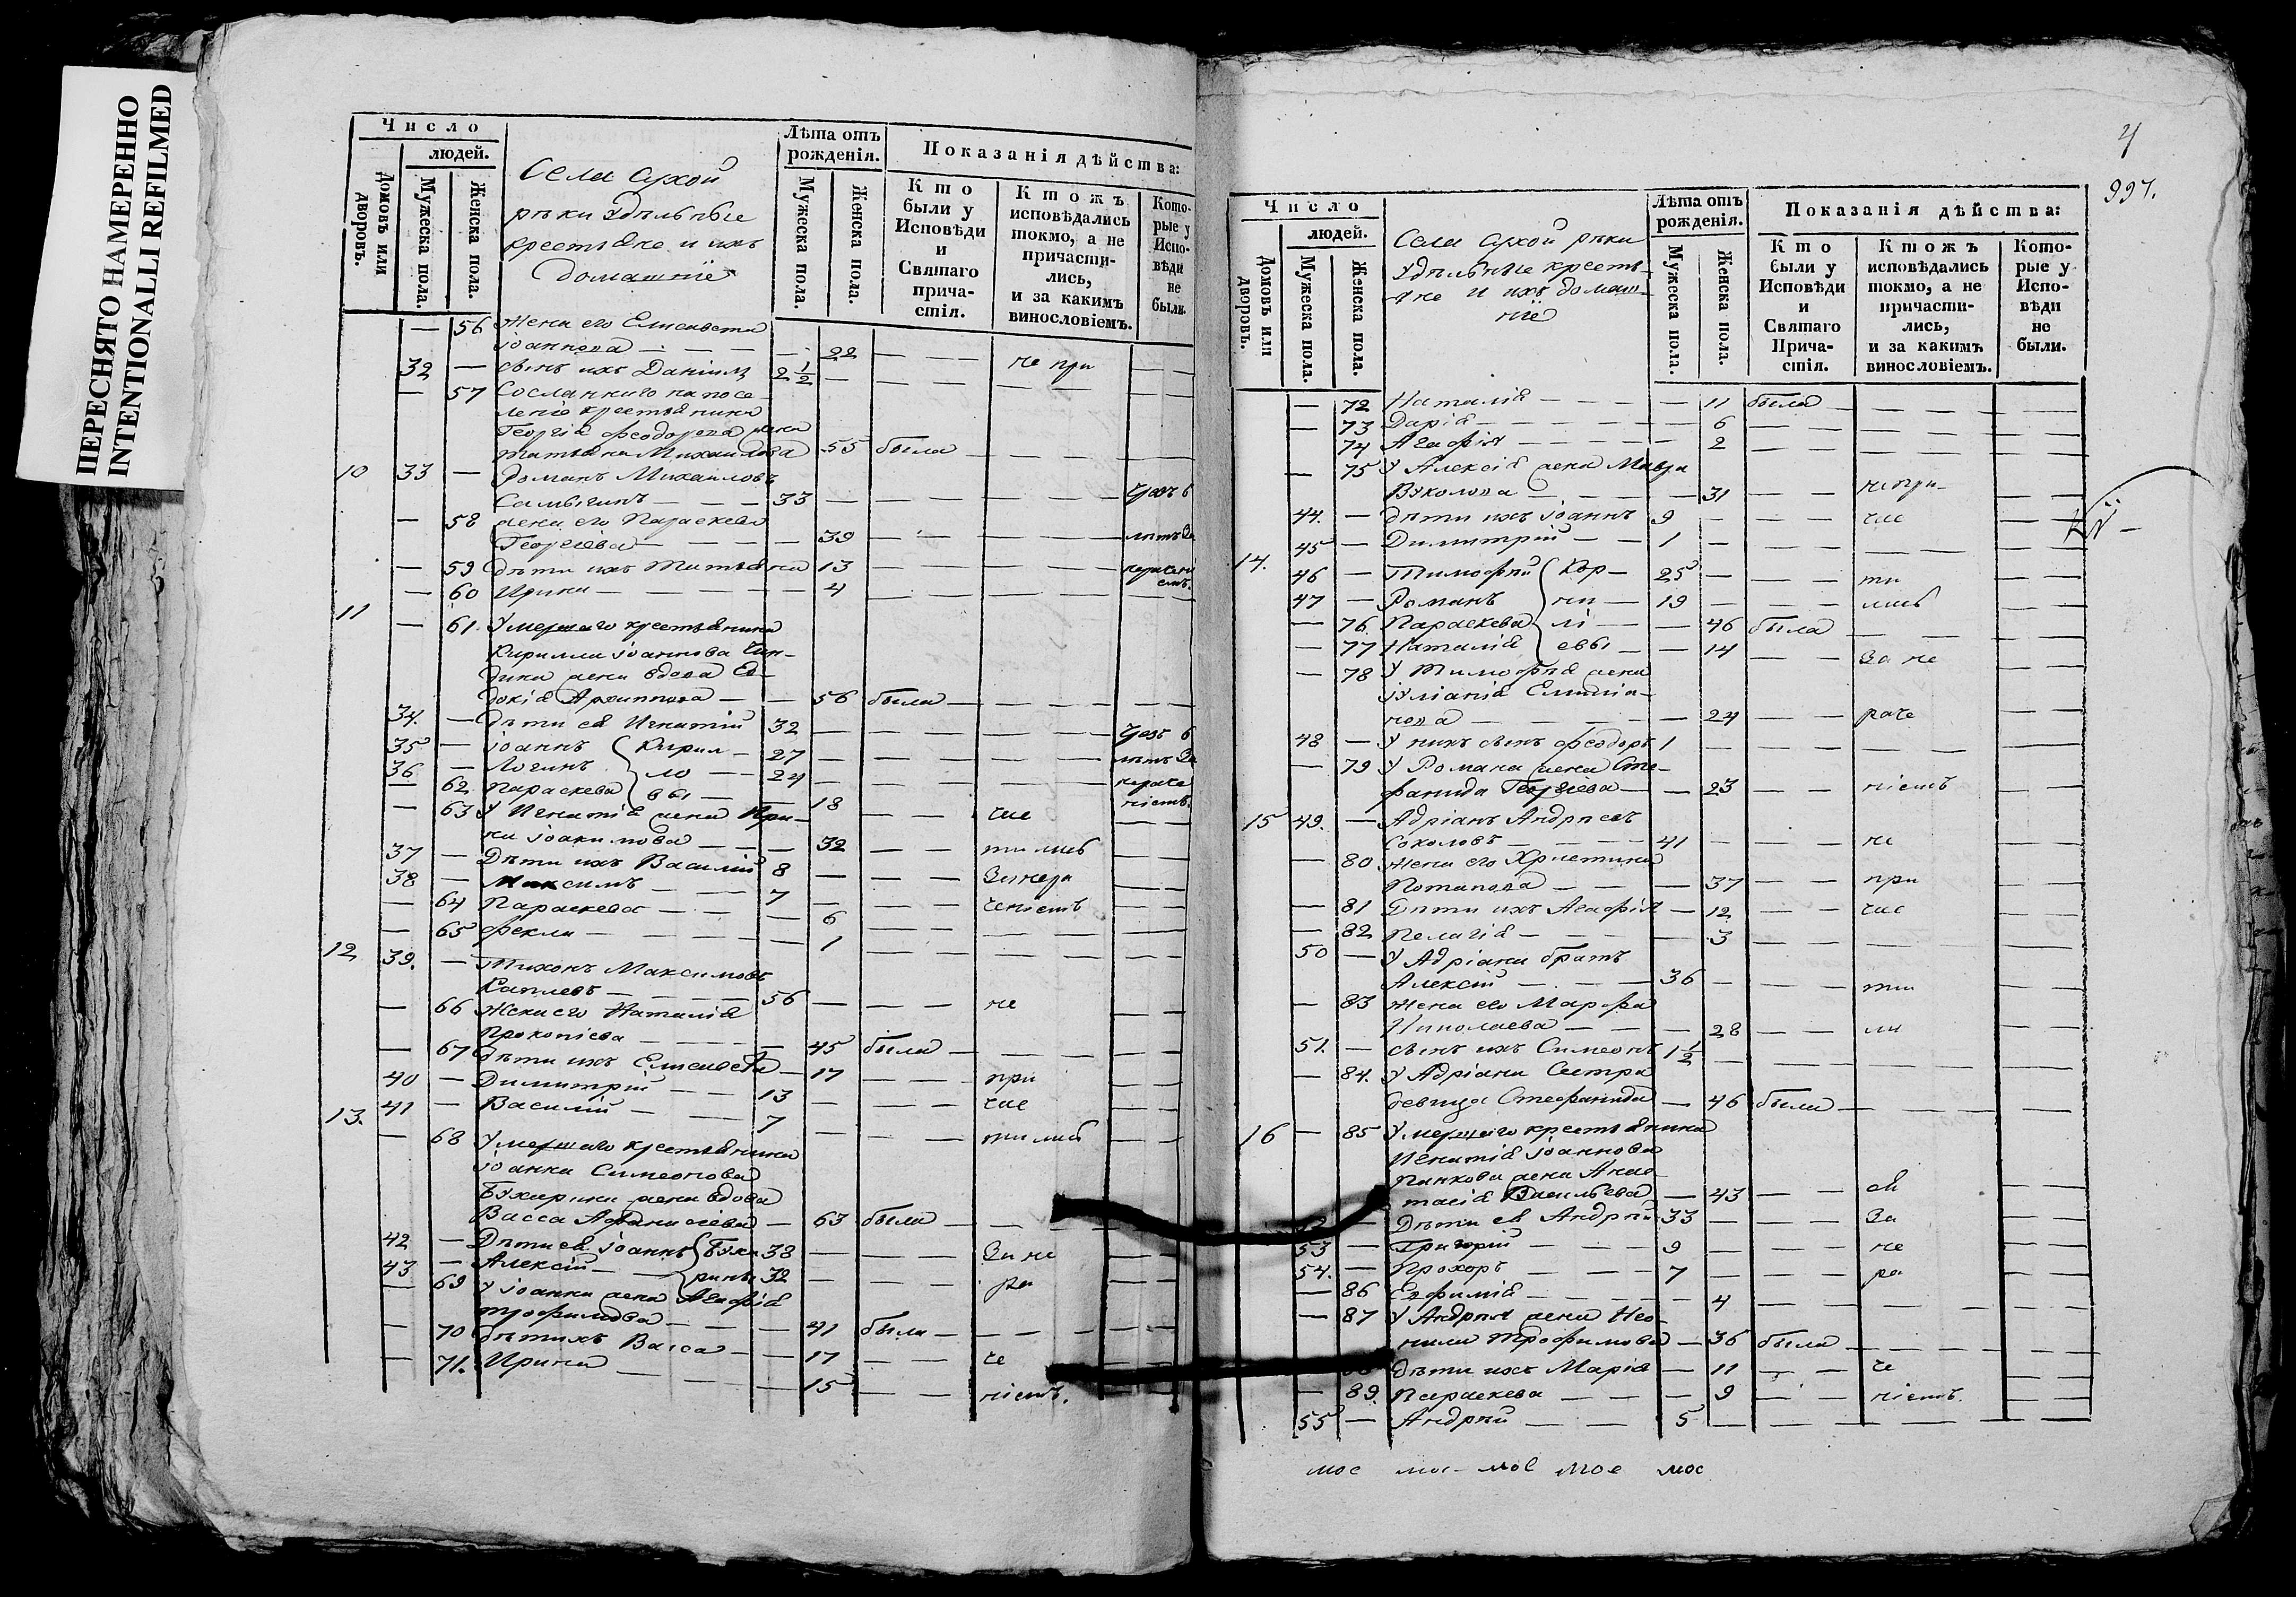 ПЕРЕСНЯТО НАМЕРЕННО
INTENTIONALLI REFILMED
Число
людей.
Домовъ или дворовъ.
Мужеска пола.
Женска пола.
Села Сухой
рѣки Удѣльные
крестьяне и ихъ
домашніе
Лѣта отъ рожденія.
Мужеска пола.
Женска пола.
Показанія дѣйства:
Кто были у Исповѣди и Святаго причастія.
Ктожъ исповѣдались токмо, а не причастились, и за какимъ винословіемъ.
Которые у Исповѣди не были.
— 56 Жена его Елисавета
Іоаннова — 22 — не при
32 — сынъ ихъ Даніилъ 2 1/2
— 57 Сосланнаго на посе-
леніе крестьянина
Георгія Феодорова жена
Татьяна Михаилова 55 была
10 33 — Романъ Михаиловъ
33
— 58 жена его Параскева
Георгіева — 39
— 59 дѣти ихъ Татьяна 13
— 60 Ирина — 4
11 — 61. Умершаго крестьянина
Кирилла Іоаннова
жена вдова Ев-
докія Архиппова — 56 была
34. — Дѣти ея Игнатій 32
35 — Іоаннъ Кирил- 27
36 — Логинъ ло 24
— 62 Параскева вы 18
— 63 У Игнатія жена Ири-
на Іоакимова — 32 тилис
37 — Дѣти ихъ Василій 8
38 — Максимъ 7
— 64 Параскева — 6
— 65 Фекла — 1
12 39. — Тихонъ Максимовъ
Каплевъ — 56 — не
— 66 Жена его Наталія
Прокопіева — 45 была
— 67 дѣти ихъ Елисавета — 17 при
40 — Димитрій — 13 час
41 — Василій — 7
13. — 68 Умершаго крестьянина
Іоанна Симеонова
Бухарина жена вдова
Васса Афанасіева — 63 была
42 — Дѣти ея Іоаннъ Буха 38 — за не
43 — Алексій рины 32 — ра
— 69 У Іоанна жена Агафія
Трофимова — 41 была
— 70 дѣти ихъ Васса — 17 че
— 71. Ирина — 15 ніемъ.
4
997.
Число
людей.
Домовъ или дворовъ.
Мужеска пола.
Женска пола.
Села Сухой рѣки
Удѣльные кресть-
яне и ихъ домаш-
ніе
Лѣта отъ рожденія.
Мужеска пола.
Женска пола.
Показанія дѣйства:
Кто были у Исповѣди и Святаго Причастія.
Ктожъ исповѣдались токмо, а не причастились, и за какимъ винословіемъ.
Которые у Исповѣди не были.
— 72 Наталія — 11 была
— 73 Дарія — 6
74 Агафія — 2
— 75 У Алексія жена Мавра
Вуколова — 31 не при-
44. — дѣти ихъ Іоаннъ 9 — час
45 — Димитрій 1
14. 46 — Тимофей Кор- 25 — ти
47 — Романъ ни 19 — лис
— 76. Параскева лі — 46 была
— 77 Наталія евы — 14 за не
— 78 У Тимофея жена
Іуліанія Емилiа-
нова — 24 — раче
48 — У нихъ сынъ Феодоръ 1
— 79 У Романа жена Сте-
фанида Георгіева — 23 — ніемъ
15 49. — Адріанъ Андреевъ
Соколовъ — 41 — не
— 80 Жена его Христина
Потапова — 37 — при
— 81 Дѣти ихъ Агафія — 12 — час
— 82 Пелагія — 3
50 — У Адріана братъ
Алексій — 36 — ти
— 83 Жена его Марфа
Николаева — 28 — ли
51. — сынъ ихъ Симеонъ 1 1/2
— 84. У Адріана сестра
девица Стефанида — 46 была
16 — 85 Умершаго крестьянина
Игнатія Іоаннова
Панкова жена Анас-
тасія Васильева — 43 — сь
— Дѣти ея Андрей 33 — за
53 — Григорій — 9 — не
54. — Прохоръ — 7 — ра
— 86 Евфимія — 4
— 87 У Андрея жена Нео-
нила Трофимова — 36 была
дѣти ихъ Марія — 11 — че
— 89. Параскева — 9 — ніемъ.
55 — Андрей — 5
мое мое мое мое мое